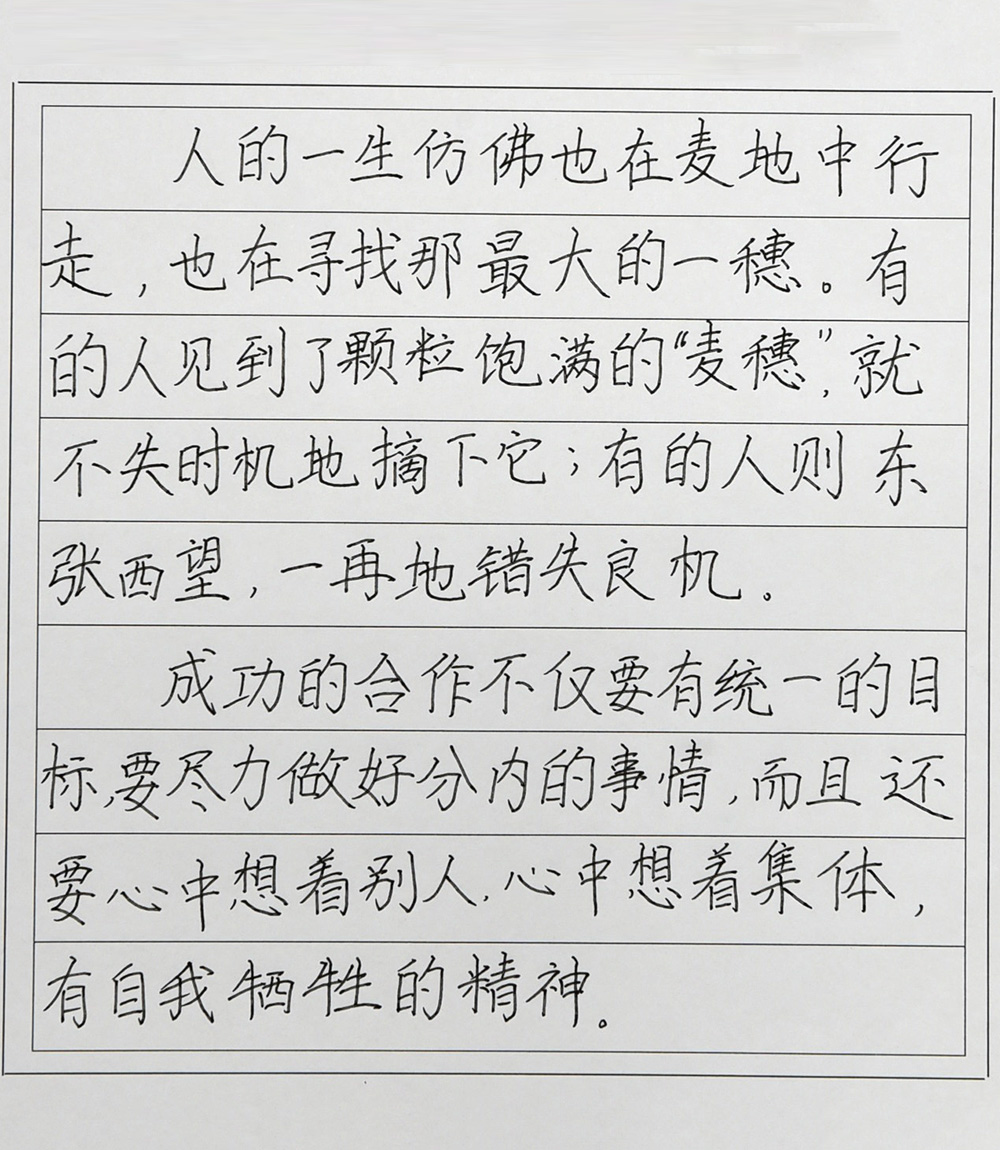 人的一生仿佛也在麦地中行
走，也在寻找那最大的一穗。有
的人见到了颗粒饱满的“麦穗”，就
不失时机地摘下它；有的人则东
张西望，一再地错失良机。
成功的合作不仅要有统一的目
标，要尽力做好分内的事情，而且还
要心中想着别人，心中想着集体，
有自我牺牲的精神。